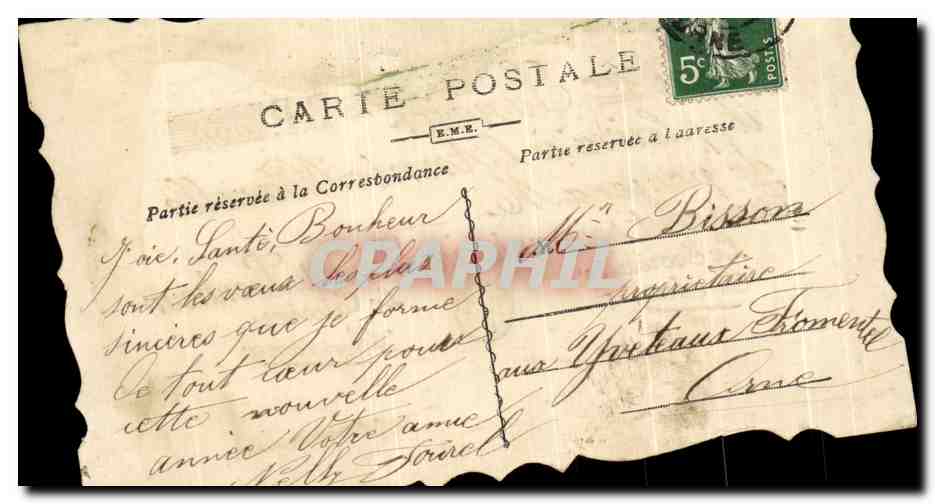 CARTE POSTALE
E.M.E.
Partie réservée à la Correspondance
Partie réservée à l'adresse
5c
POSTES
NE
Joie, Santé, Bonheur
sont les vœux les plus
sincères que je forme
de tout cœur pour
cette nouvelle
année Votre amie
Nelly
Mr Bisson
propriétaire
aux Yveteaux Fromentel
Orne
CPAPHIL